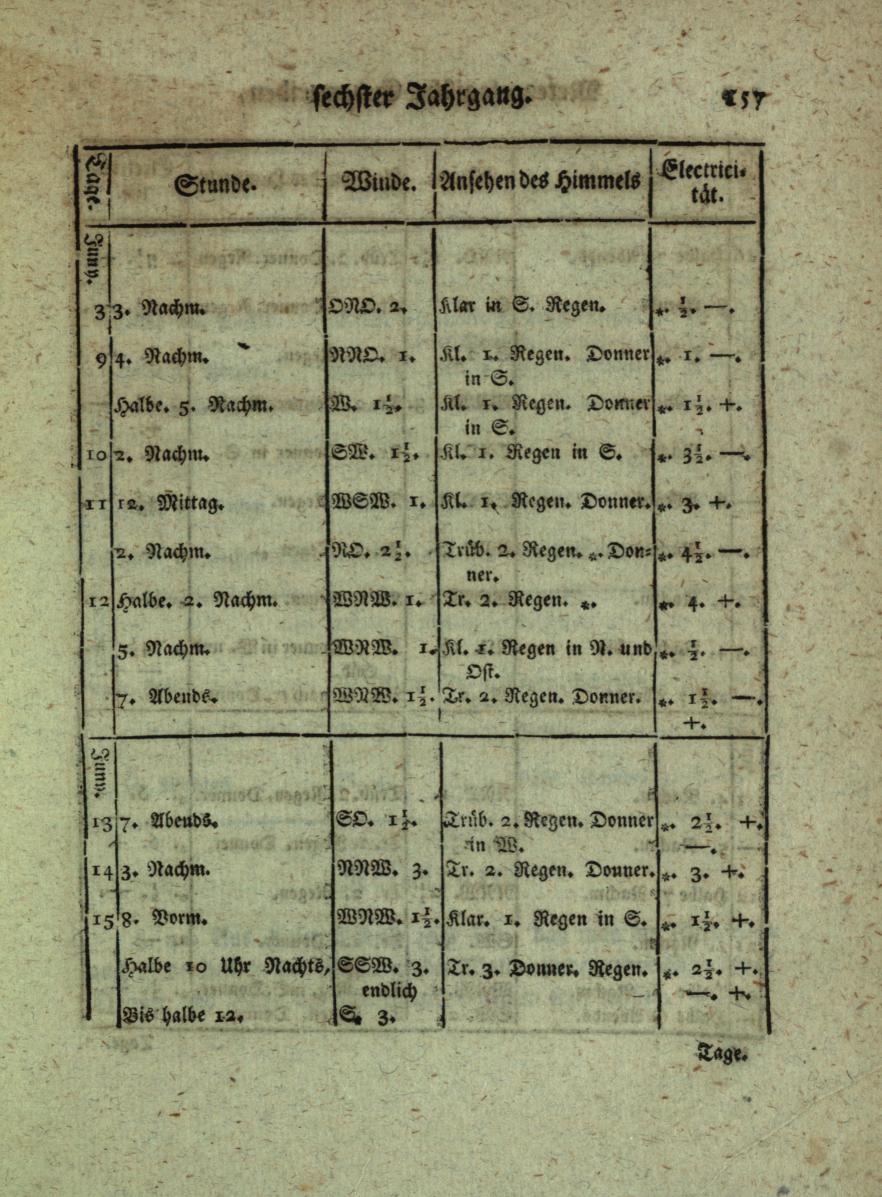 sechster Jahrgang. 157
Tage. Stunde. Winde. Ansehen des Himmels Electrici-
tåt.
Juny.
3 3. Nachm. ONO. 2. Klar in S. Regen. *. ½. —.
9 4. Nachm. NNO. 1. Kl. 1. Regen. Donner *. 1. —.
in S.
Halbe. 5. Nachm. W. 1½. Kl. 1. Regen. Donner *. 1½. +.
in S.
10 2. Nachm. SW. 1½. Kl. 1. Regen in S. *. 3½. —.
11 12. Mittag. WSW. 1. Kl. 1. Regen. Donner. *. 3. +.
2. Nachm. NO. 2½. Trůb. 2. Regen. *. Don= *. 4½. —.
ner.
12 Halbe. 2. Nachm. WNW. 1. Tr. 2. Regen. *. *. 4. +.
5. Nachm. WNW. 1. Kl. 1. Regen in N. und *. ½. —.
Ost.
7. Abends. WNW. 1½. Tr. 2. Regen. Donner. *. 1½. —.
+.
Juny.
13 7. Abends. SO. 1½. Trůb. 2. Regen. Donner *. 2½. +.
in W. —.
14 3. Nachm. NNW. 3. Tr. 2. Regen. Donner. *. 3. +.
15 8. Vorm. WNW. 1½. Klar. 1. Regen in S. *. 1½. +.
Halbe 10 Uhr Nachts, SSW. 3. Tr. 3. Donner. Regen. *. 2½. +.
endlich —. +.
Bis halbe 12. S. 3.
Tage.